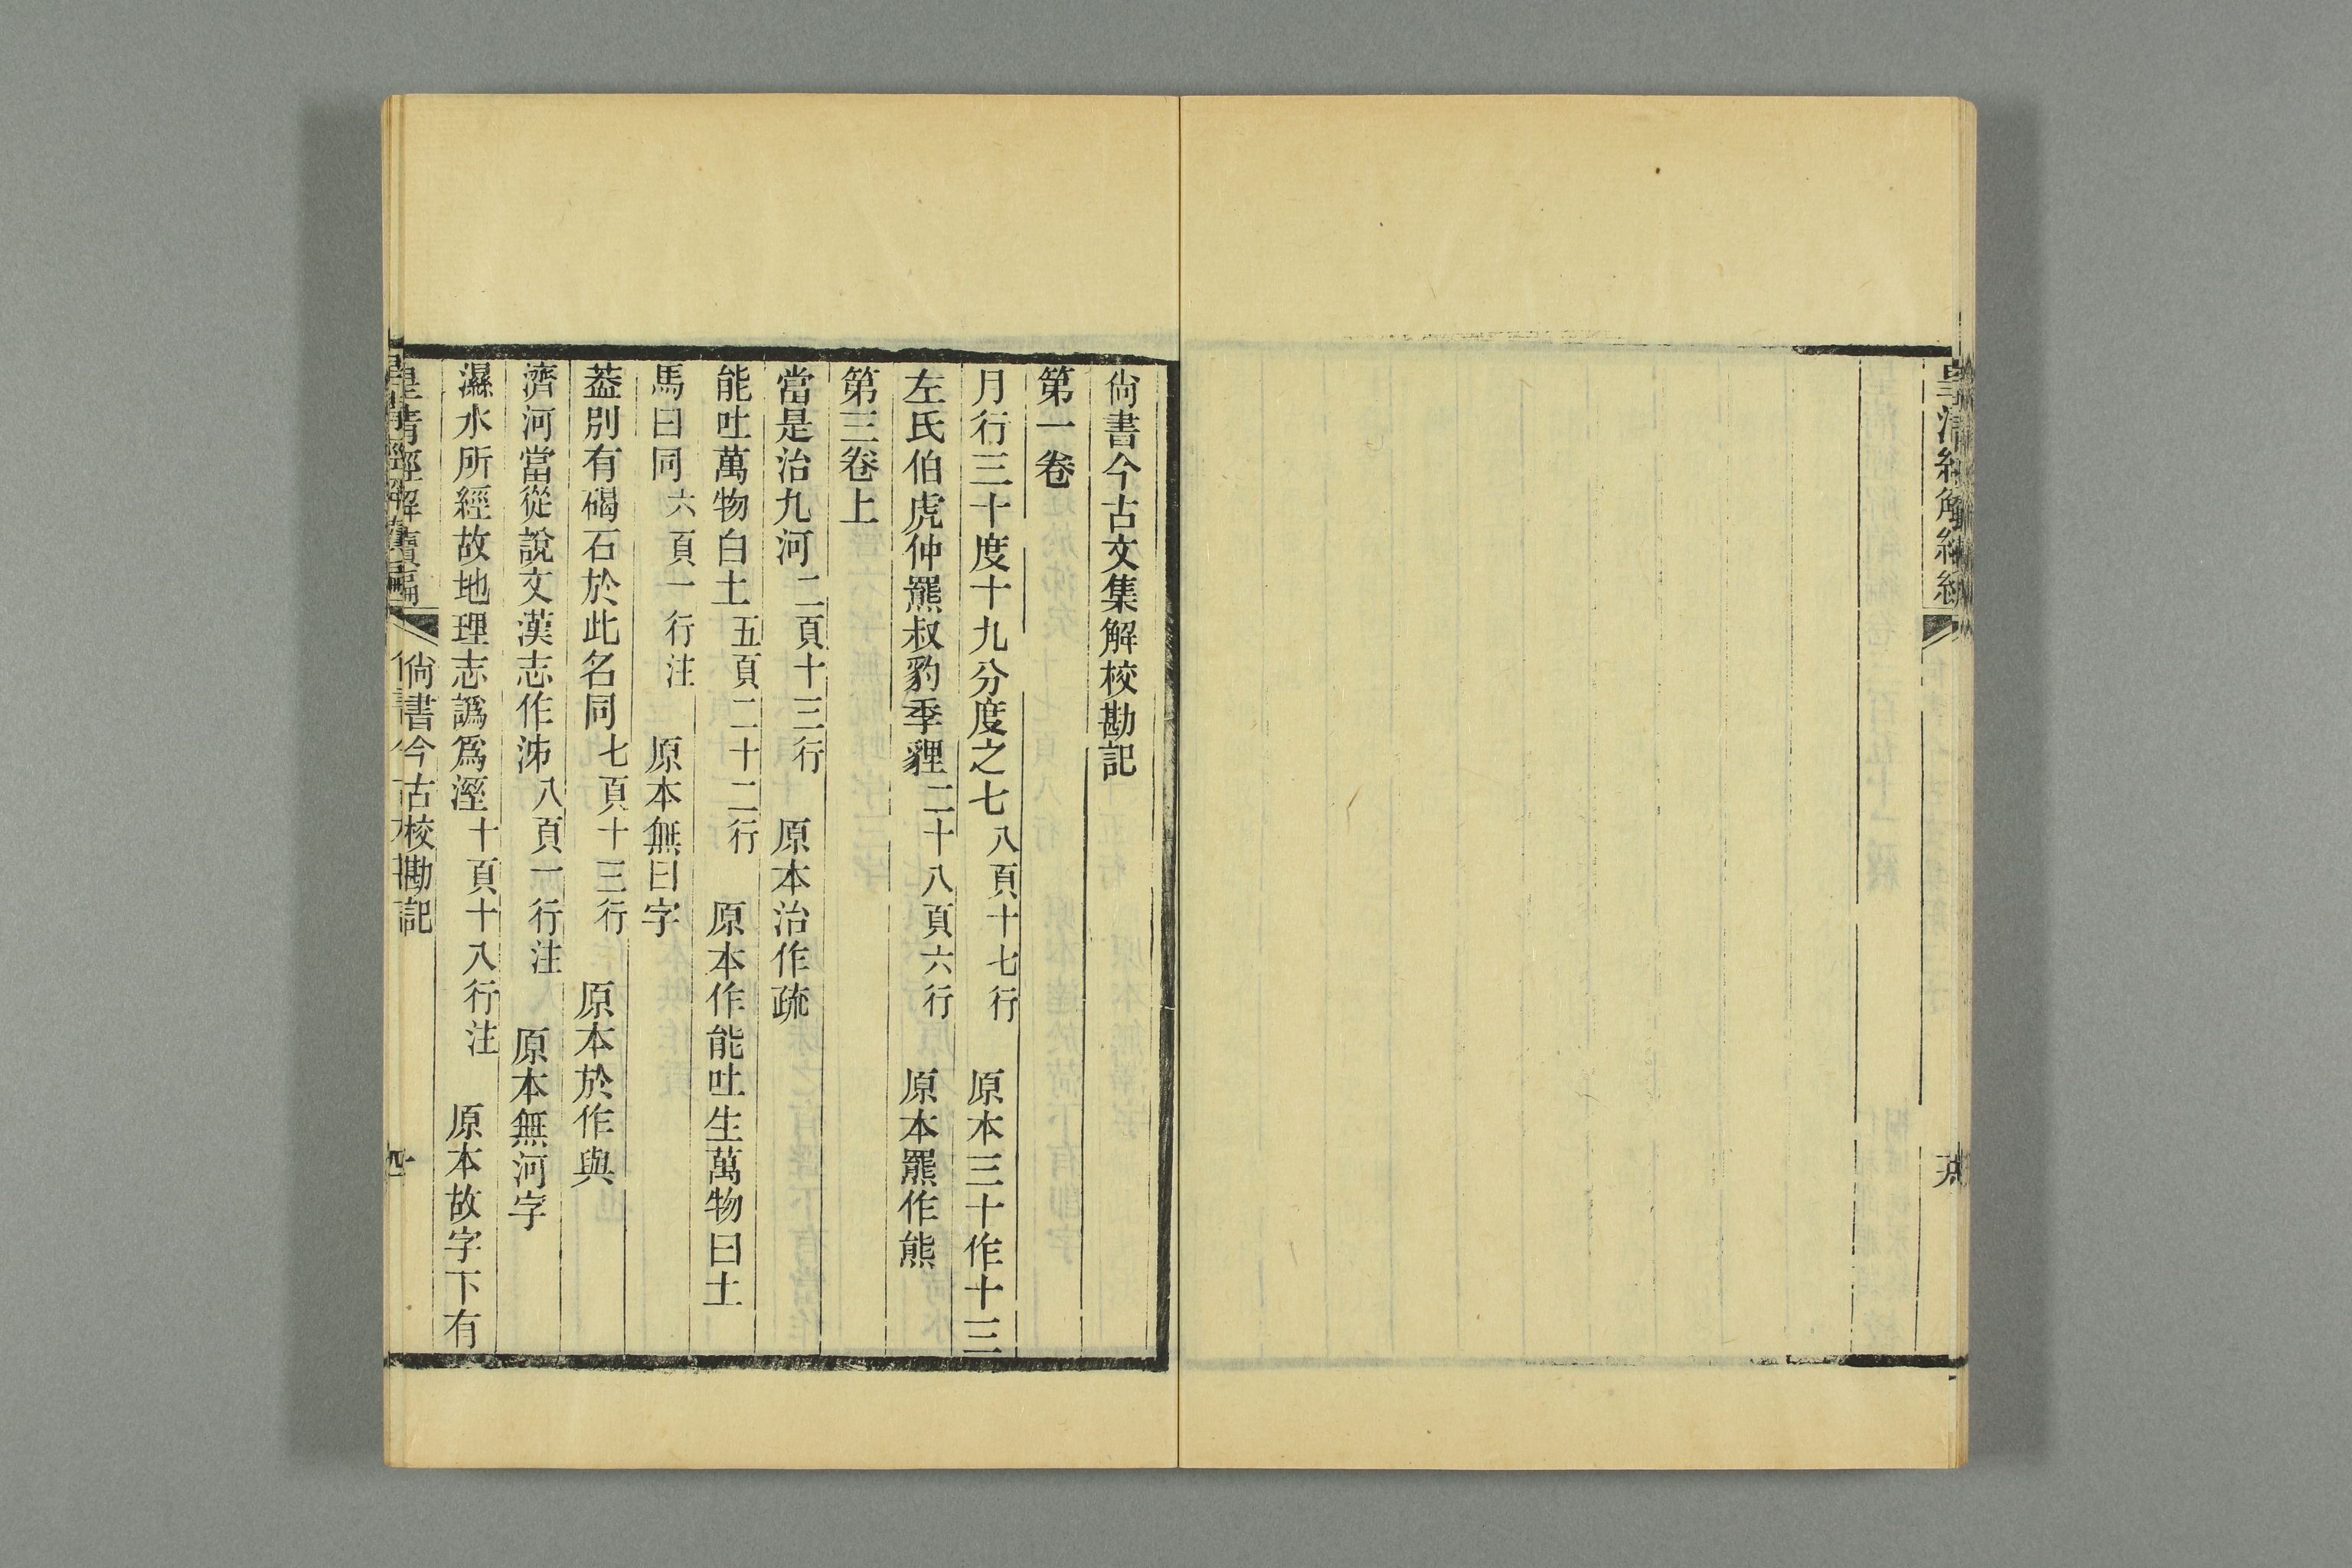 尙書今古文集解校勘記
第一卷
月行三十度十九分度之七八頁十七行　原本三十作十三
左氏伯虎仲羆叔豹季貍二十八頁六行　原本羆作熊
第三卷上
當是治九河二頁十三行　原本治作疏
能吐萬物白土五頁二十二行　原本作能吐生萬物曰土
馬曰同六頁一行注　原本無曰字
葢別有碣石於此名同七頁十三行　原本於作與
濟河當從說文漢志作泲八頁一行注　原本無河字
濕水所經故地理志譌爲溼十頁十八行注　原本故字下有
皇淸經解續編　尙書今古校勘記